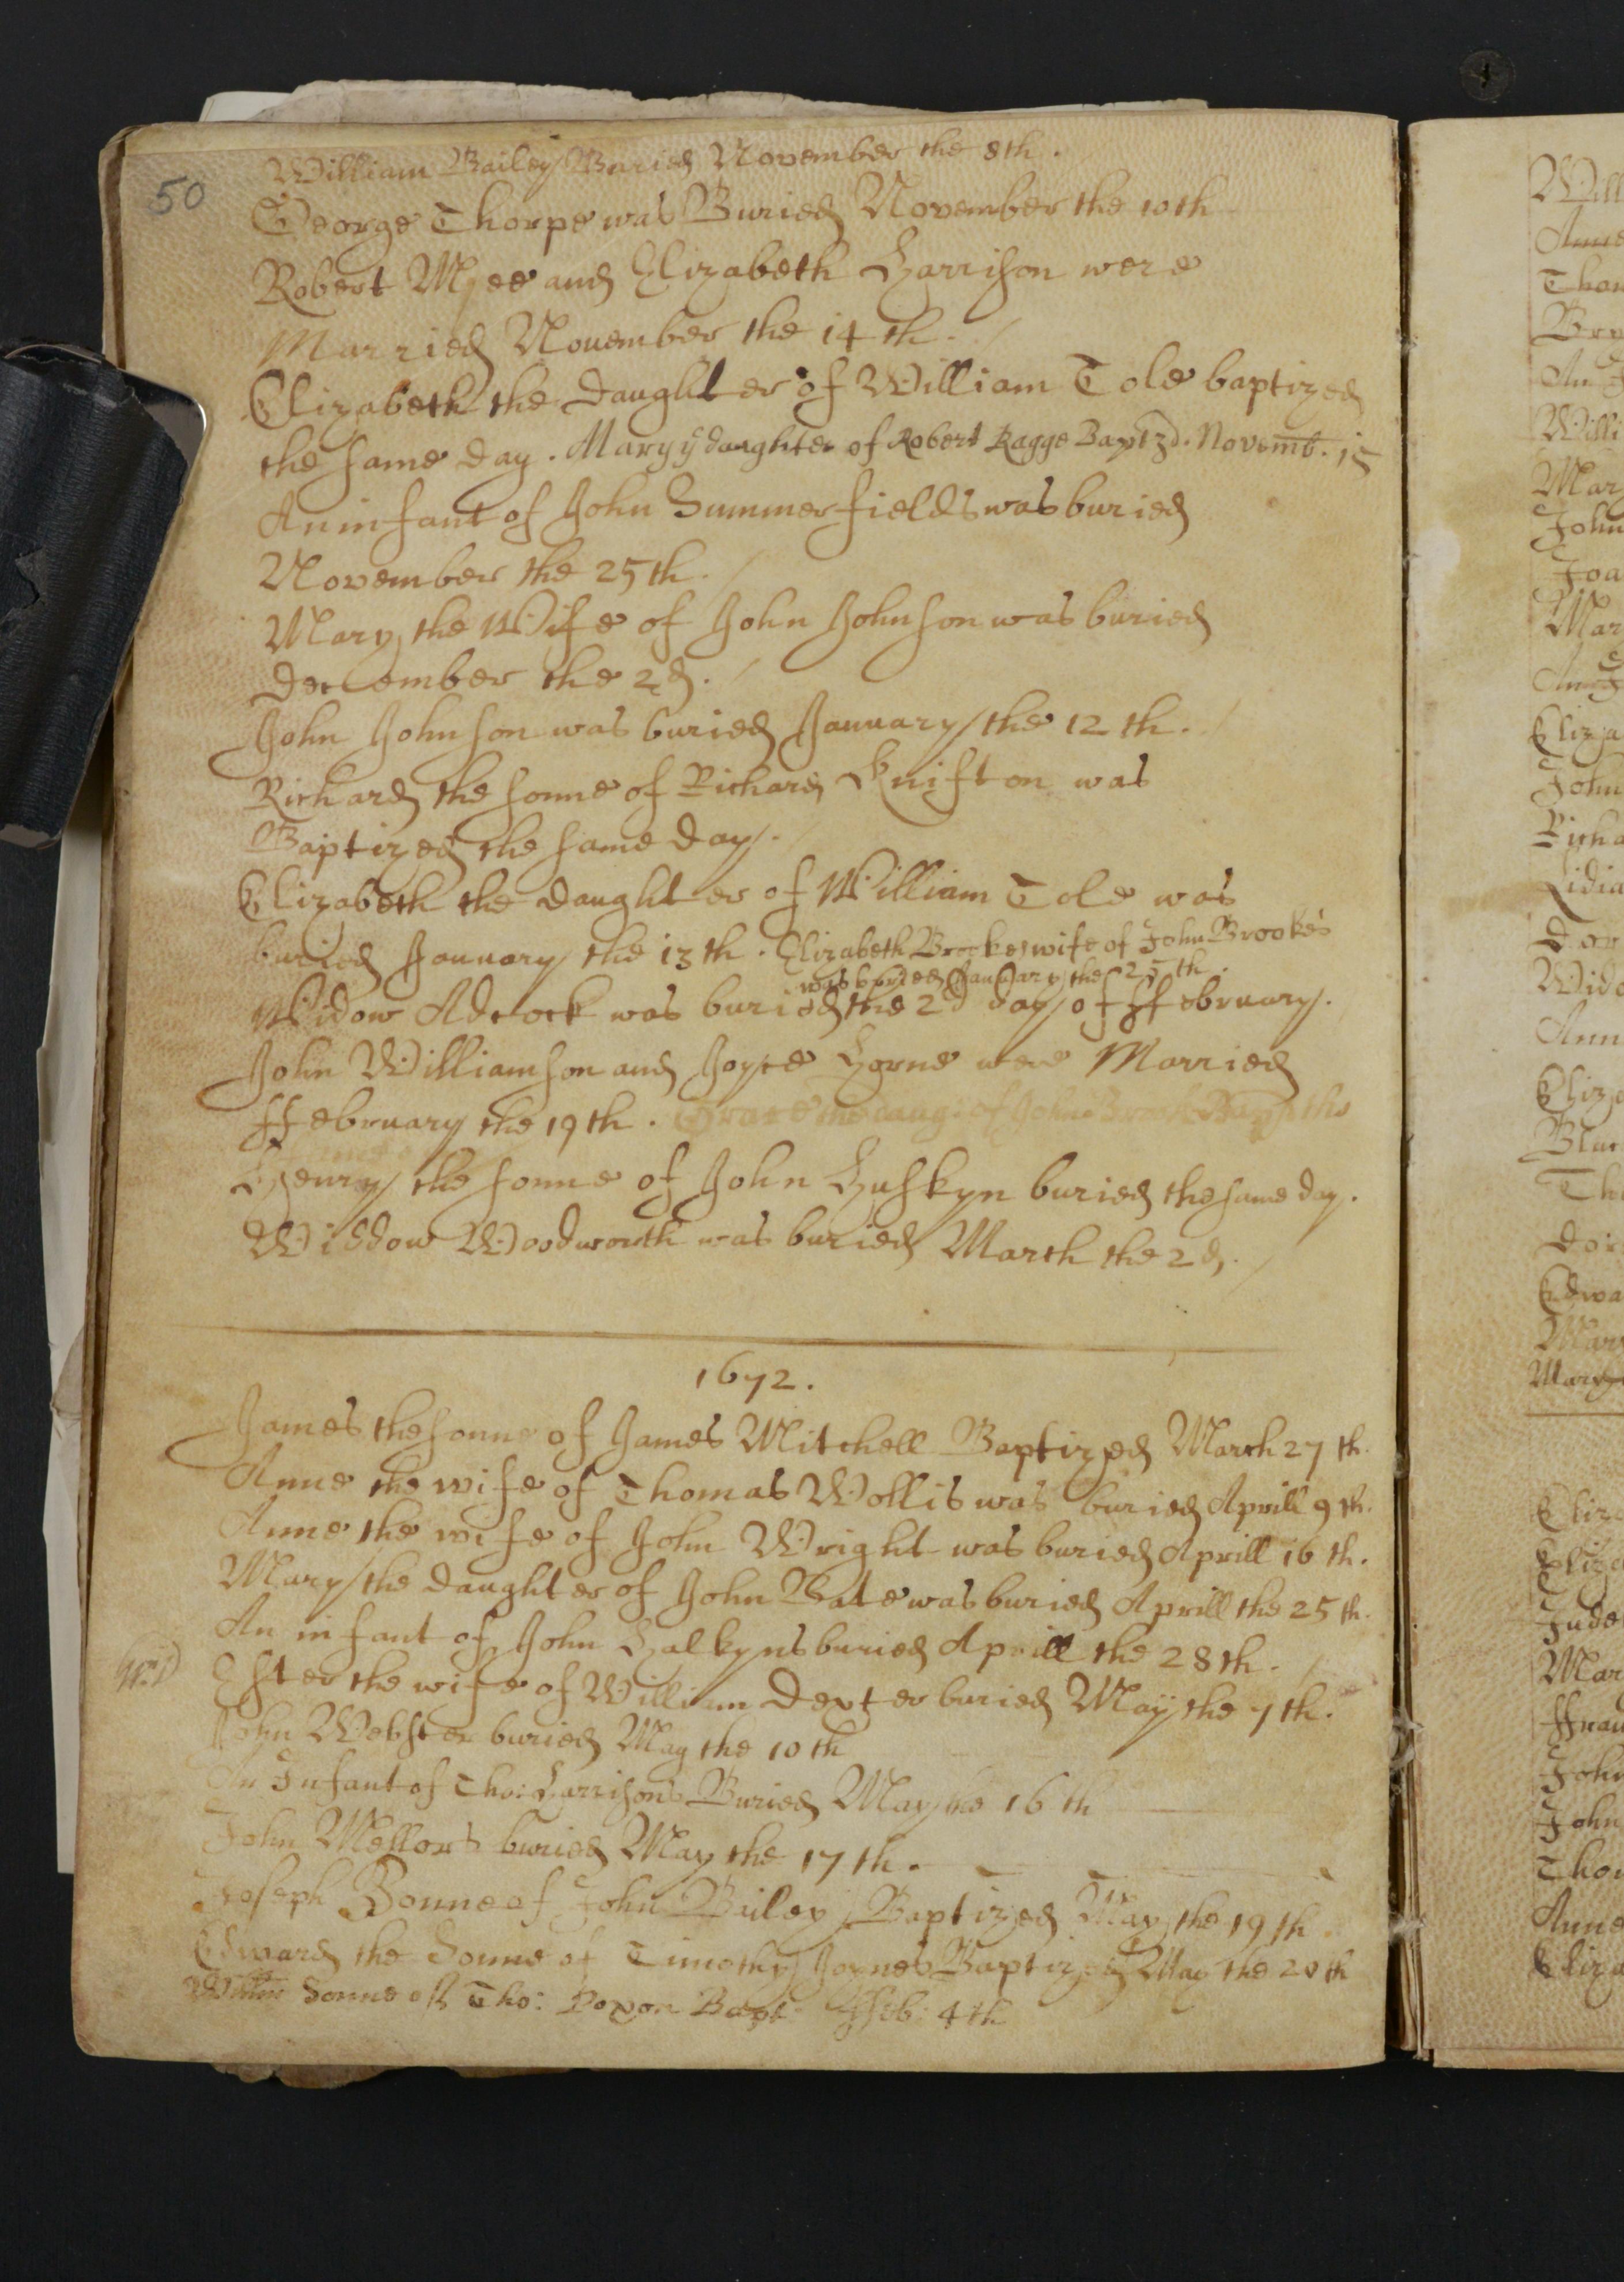 50
William Bailey Buried November the 8th.
George Thorpe was Buried November the 10th
Robert Myee and Elizabeth Harrison were
Married November the 14th.
Elizabeth the Daughter of William Tole baptized
the same Day. Mary yͤ daughter of Robert Ragge Baptzd. Novemb. 15
An infant of John Summerfields was buried
November the 25th.
Mary the Wife of John Johnson was buried
December the 2d.
John Johnson was buried January the 12th.
Richard the sonne of Richard Knifton was
Baptized the same Day.
Elizabeth the Daughter of William Tole was
buried January the 13th. Elizabeth Brookes wife of John Brookes
was buried January the 25th.
Widow Adcock was buried the 2d Day of ffebruary.
John Williamson and Joyce Horne were Married
ffebruary the 19th. Grace the daug: of John Bapt the
Henry the sonne of John Huskyn buried the same day.
Widdow Woodworth was buried March the 2d.
1672.
James the sonne of James Mitchell Baptized March 27th.
Anne the wife of Thomas Wollis was buried Aprill 9th.
Anne the wife of John Wright was buried Aprill 16th.
Mary the Daughter of John Bate was buried Aprill the 25th.
An infant of John Halkyns buried Aprill the 28th.
Ester the wife of William Dexter buried May the 7th.
John Webster buried May the 10th
An Infant of Tho: Harrisons Buried May the 16th
John Mellors buried May the 17th.
Joseph Sonne of John Bailey Baptized May the 19th
Edward the Sonne of Timothy Joynes Baptized May the 20th
Willm Sonne of Tho: Doxon Bapt ffeb: 4th
Will
Anne
Thom
Willi
Mar
John
Joa
Mar
Eliza
John
Richa
Lidia
Dor
Wido
Ann
Eliza
The
Dor
Edwa
Mary
Mary
Eliz
Eliza
Jude
Mar
ffran
John
John
Thom
Anne
Eliza